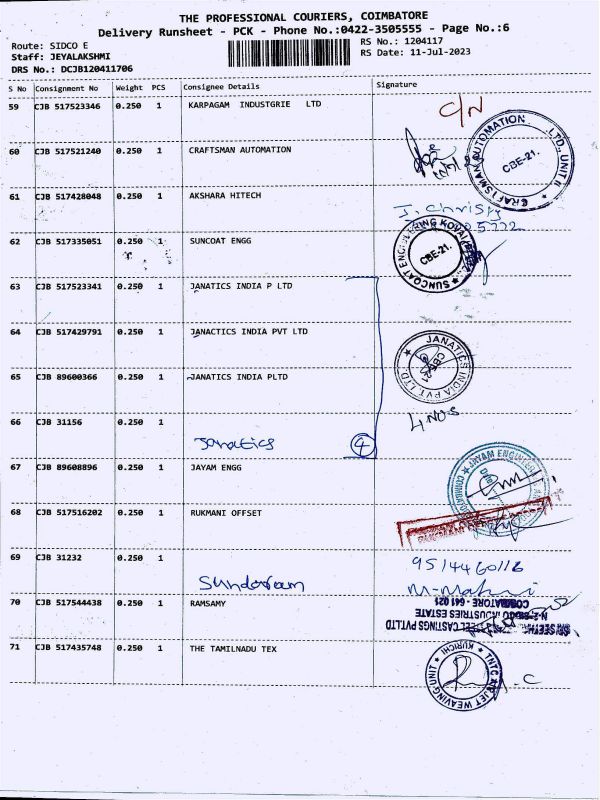 THE PROFESSIONAL COURIERS, COIMBATORE
Delivery Runsheet - PCK - Phone No.:0422-3505555 - Page No.:6
Route: SIDCO E
RS No.: 1204117
Staff: JEYALAKSHMI
RS Date: 11-Jul-2023
DRS No.: DCJB120411706
S No Consignment No Weight PCS Consignee Details Signature
59 CJB 517523346 0.250 1 KARPAGAM INDUSTGRIE LTD C/N
60 CJB 517521240 0.250 1 CRAFTSMAN AUTOMATION
CRAFTSMAN AUTOMATION LTD, UNIT II
CBE-21.
61 CJB 517428048 0.250 1 AKSHARA HITECH
J. Christy
62 CJB 517335051 0.250 1 SUNCOAT ENGG
SUNCOAT ENGINEERING KOVAI
CBE-21.
63 CJB 517523341 0.250 1 JANATICS INDIA P LTD
64 CJB 517429791 0.250 1 JANACTICS INDIA PVT LTD
JANATICS INDIA PVT. LTD.
65 CJB 89600366 0.250 1 JANATICS INDIA PLTD
66 CJB 31156 0.250 1
Janatics 4
4 NOS
67 CJB 89608896 0.250 1 JAYAM ENGG
JAYAM
68 CJB 517516202 0.250 1 RUKMANI OFFSET
69 CJB 31232 0.250 1
Sundaram
9514460116
70 CJB 517544438 0.250 1 RAMSAMY
COIMBATORE - 641 021
INDUSTRIES ESTATE
CASTINGS PVT LTD
71 CJB 517435748 0.250 1 THE TAMILNADU TEX
WEAVING UNIT
KURICHI